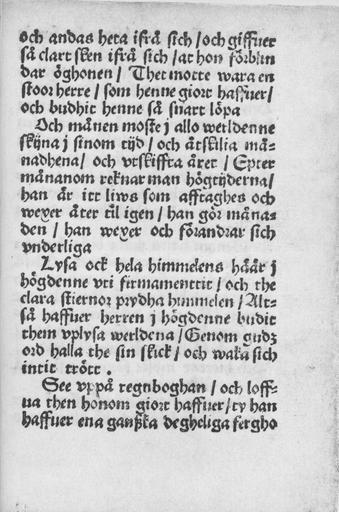 och andas heta ifrå sich / och giffuer
så clart sken ifrå sich / at hon förblin
dar öghonen / Thet motte wara en
stoor herre / som henne giort haffuer /
och budhit henne så snart löpa
Och månen moste j allo werldenne
skijna j sinom tijd / och åtskilia må-
nadhena / och vtskiffta året / Epter
månanom reknar man högtijderna /
han är itt liws som afftaghes och
wexer åter til igen / han gör måna-
den / han wexer och förandrar sich
vnderliga
Lysa ock hela himmelens häär j
högdenne vti firmamenttit / och the
clara stiernor prydha himmelen / Alt-
så haffuer herren j högdenne budit
them vplysa werldena / Genom gudz
ord halla the sin skick / och waka sich
intit trött .
See vppå regnboghan / och loff-
ua then honom giort haffuer / ty han
haffuer ena ganska degheliga fergho